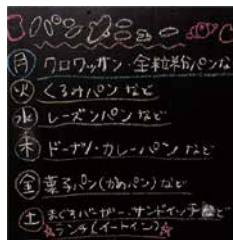 パンメニュー
月 クロワッサン・全粒粉パンなど
火 くるみパンなど
水 レーズンパンなど
木 ドーナツ・カレーパンなど
金 菓子パン(かめパン)など
土 まぐろバーガー、サンドイッチなど
ランチ(イートイン)